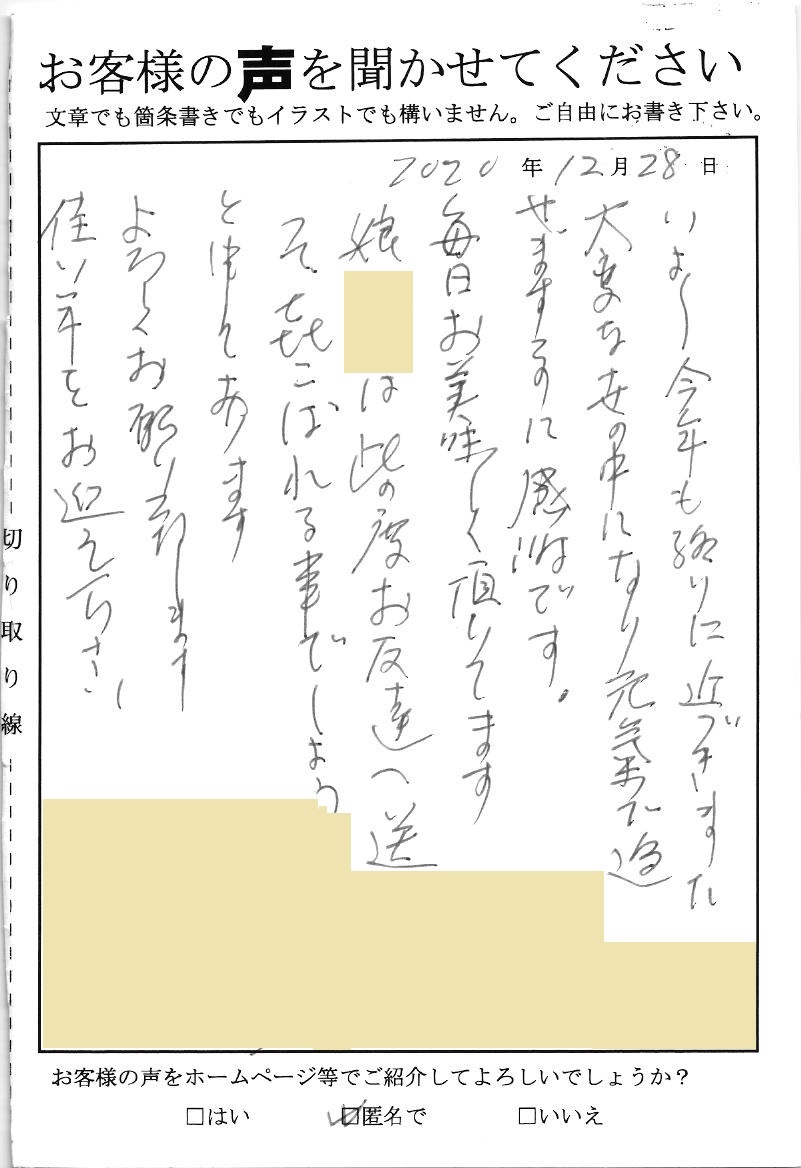 お客様の声を聞かせてください
文章でも箇条書きでもイラストでも構いません。ご自由にお書き下さい。
2020年12月28日
いよ〱今年も終りに近づきました
大変な世の中になり元気で過
せますするに感謝です。
毎日お美味しく頂いてます
娘 は此の度お友達へ送
って、喜こばれる事でしょう
と申してあります
よろしくお願い致します
佳い年をお迎え下さい
切り取り線
お客様の声をホームページ等でご紹介してよろしいでしょうか?
□はい ☑匿名で □いいえ